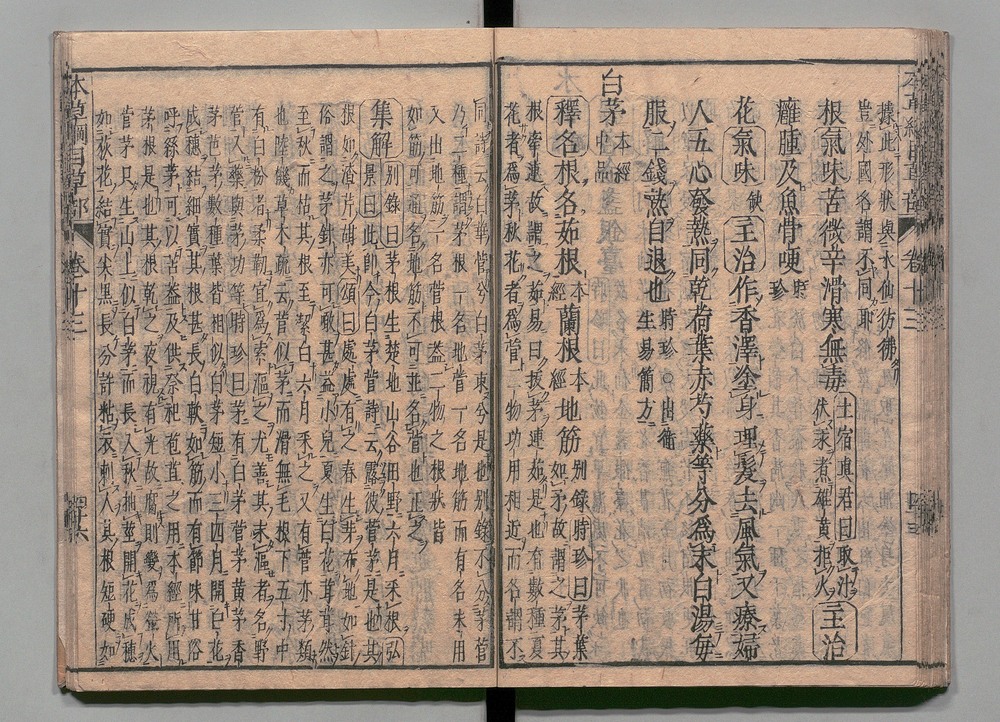 據此形狀與水仙彷彿
豈外國名謂不同耶
根氣味苦微辛滑寒無毒土宿真君曰取汁伏汞煮雄黃拒火主治
癰腫及魚骨哽珍
花氣味缺主治作香澤塗身理髮去風氣又療婦
人五心發熱同乾荷葉赤芍藥等分為末白湯每
服二錢熱自退也時珍○出衛生易簡方
白茅本經中品
釋名根名茹根本經蘭根本經地筋別錄時珍曰茅葉如矛故謂之茅其
根牽連故謂之茹易曰拔茅連茹是也有數種夏
花者為茅秋花者為菅二物功用相近而名謂不
同詩云白華菅兮白茅束兮是也別錄不分茅菅
乃二種謂茅根一名地菅一名地筋而有名未用
又出地筋一名菅根蓋二物之根狀皆
如筋可通名地筋不可並名菅也正之
集解別錄曰茅根生楚地山谷田野六月采根弘景曰此即今白茅菅詩云露彼菅茅是也其
根如渣芹甜美頌曰處處有之春生芽布地如針
俗謂之茅針亦可啖甚益小兒夏生白花茸茸然
至秋而枯其根至潔白六月采之又有菅亦茅類
也陸璣草木疏云菅似茅而滑無毛根下五寸中
有白粉者柔韌宜為索漚之尤善其未漚者名野
菅入藥與茅功等時珍曰茅有白茅菅茅黃茅香
茅芭茅數種葉皆相似白茅短小三四月開白花
成穗結細實其根甚長白軟如筋而有節味甘俗
呼絲茅可以苫蓋及供祭祀苞苴之用本經所用
茅根是也其根乾之夜視有光故腐則變為螢火
菅茅只生山上似白茅而長入秋抽莖開花成穗
如荻花結實尖黑長分許粘衣刺人其根短硬如
本草綱目草部
卷十三